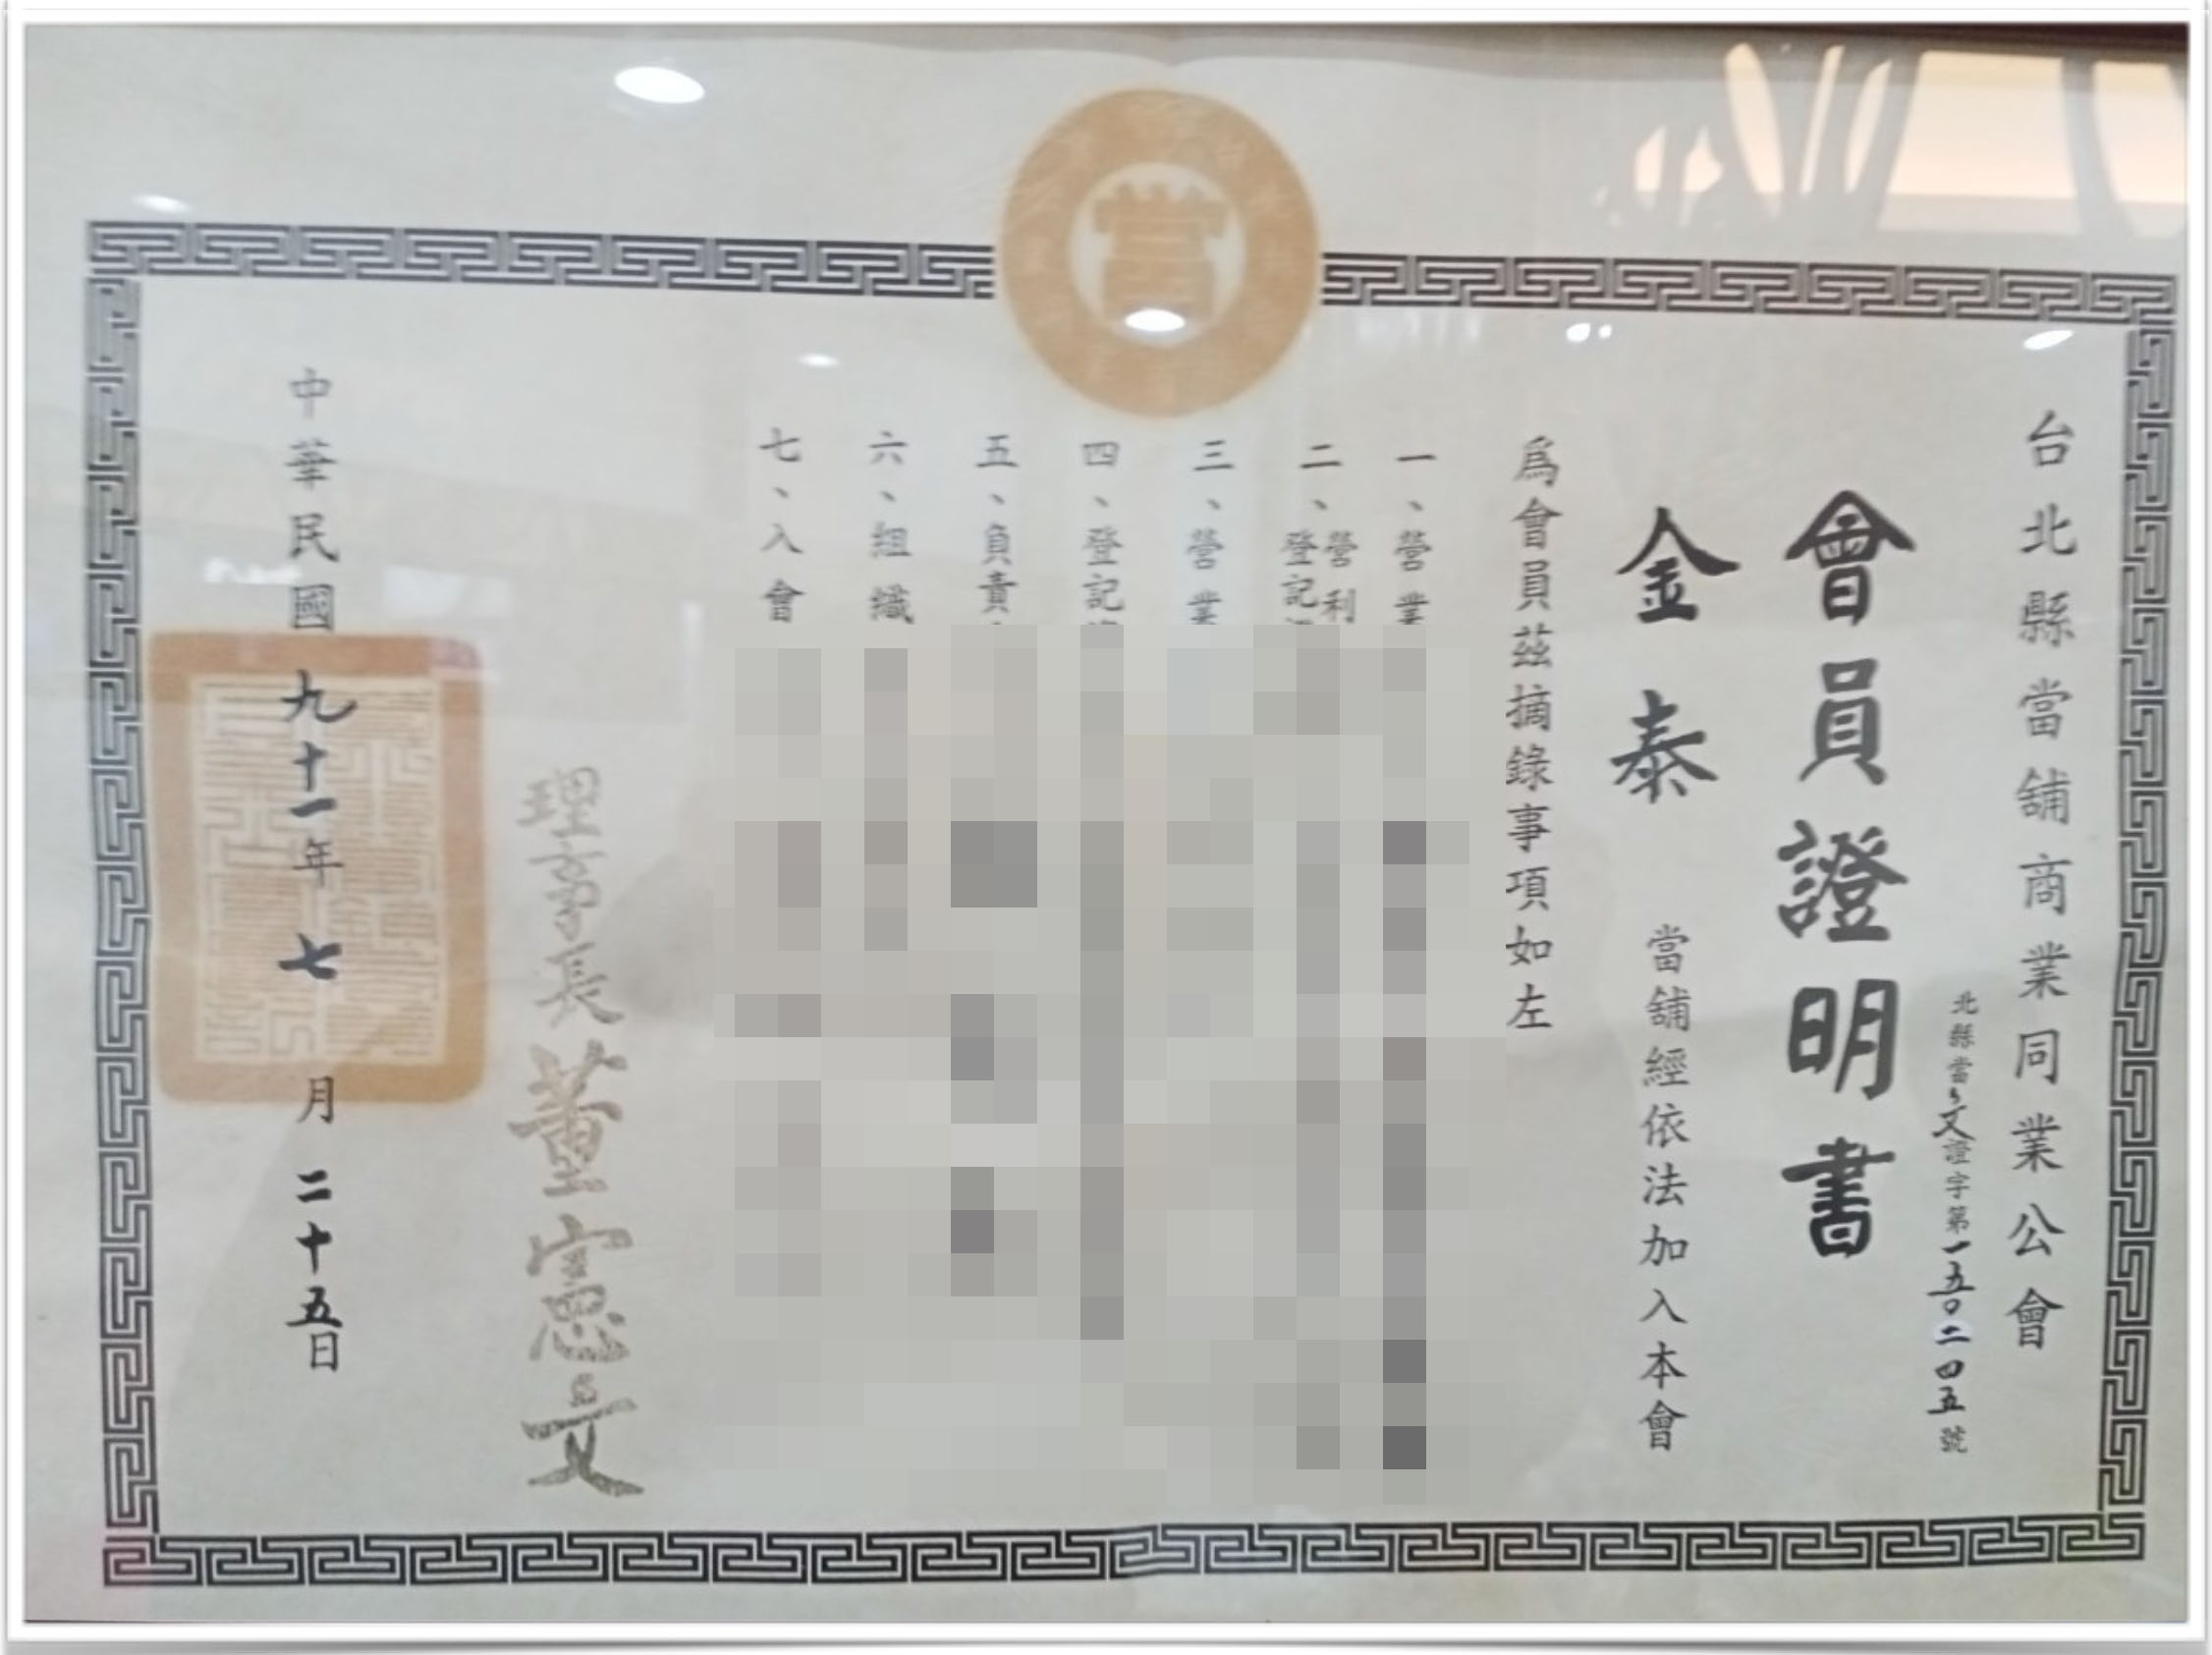 台北縣當舖商業同業公會
北縣當文證字第一五〇二四五號
會員證明書
金泰 當舖經依法加入本會
為會員茲摘錄事項如左
一、營業
二、營利登記
三、營業
四、登記
五、負責
六、組織
七、入會
理事長董憲文
中華民國九十一年七月二十五日
當